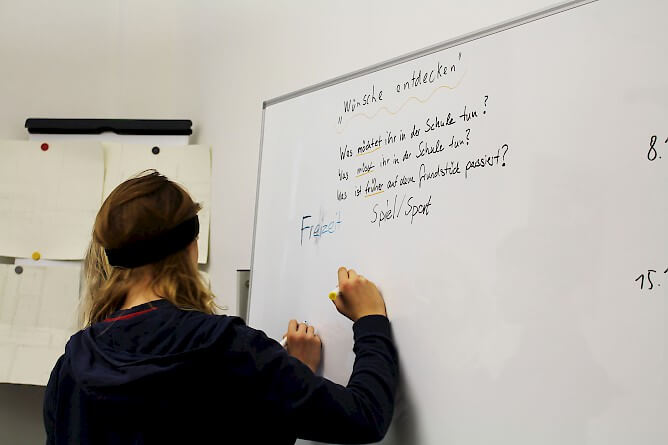 „Wünsche entdecken"
Was möchtet ihr in der Schule tun?
Was müsst ihr in der Schule tun?
Was ist früher auf dem Grundstück passiert?
Freizeit
Spiel/Sport
8.
15.